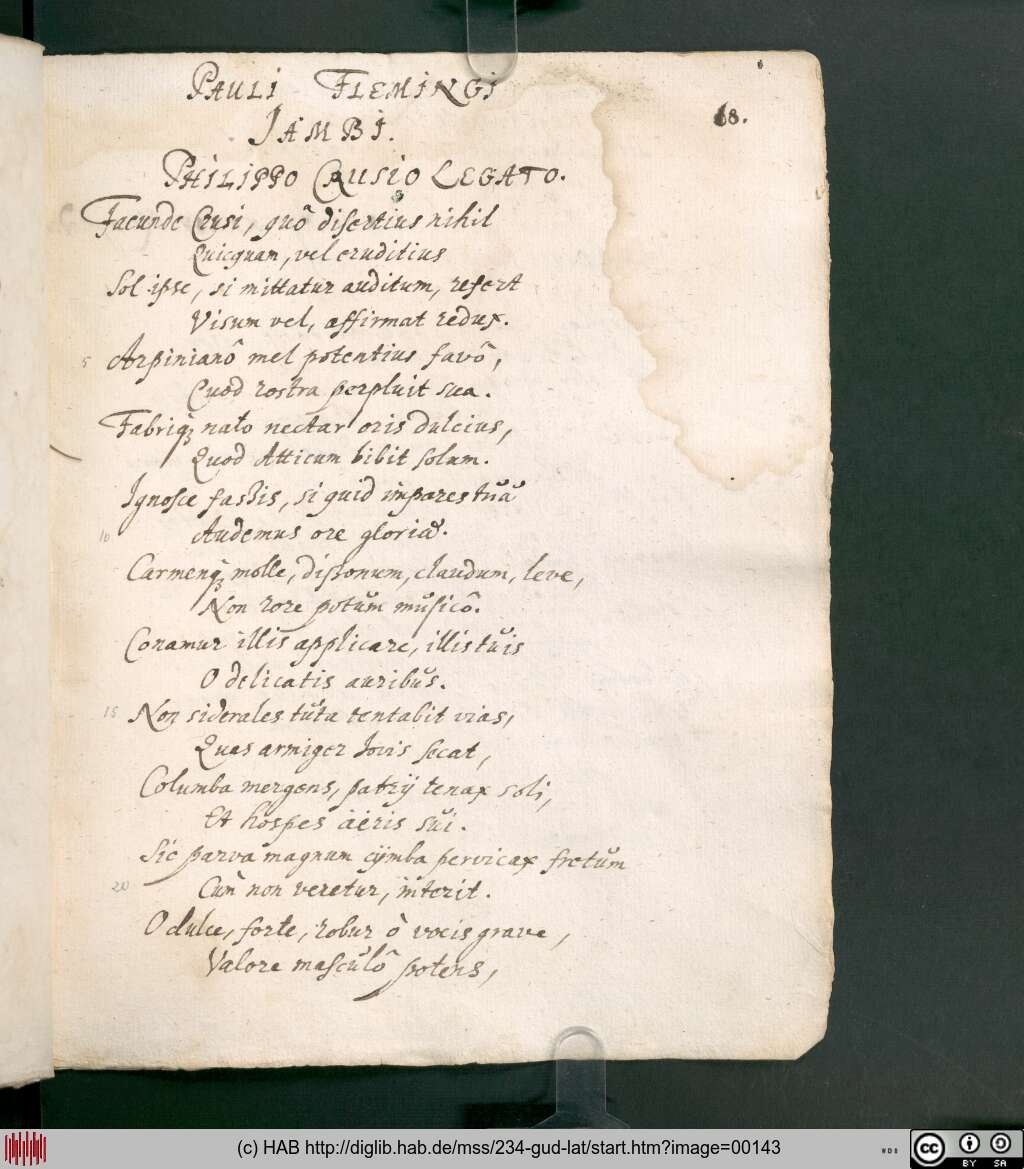 PAULI FLEMINGI
68.
JAMBI.
PHILIPPO CRUSIO LEGATO.
Facunde Crusi, quô disertius nihil
Quicquam, vel eruditius
Sol ipse, si mittatur auditum, refert
Visum vel, affirmat redux.
5 Arpinianô mel potentius favô,
Quod rostra perpluit sua.
Fabriq; nato nectar oris dulcius,
Quod Atticum bibit solum.
Ignosce fassis, si quid impares tuâ
10 Audemus ore gloriâ.
Carmenq; molle, dissonum, claudum, leve,
Non rore potum musicô.
Conamur illis applicare, illis tuis
O delicatis auribus.
15 Non siderales tuta tentabit vias,
Quas armiger Iovis secat,
Columba mergens, patrij tenax soli,
Et hospes aëris sui.
Sic parva magnum cÿmba pervicax fretum
20 Cum non veretur, interit.
O dulce, forte, robur ò vocis grave,
Valore masculô potens,
(c) HAB http://diglib.hab.de/mss/234-gud-lat/start.htm?image=00143
WDB
cc
BY SA